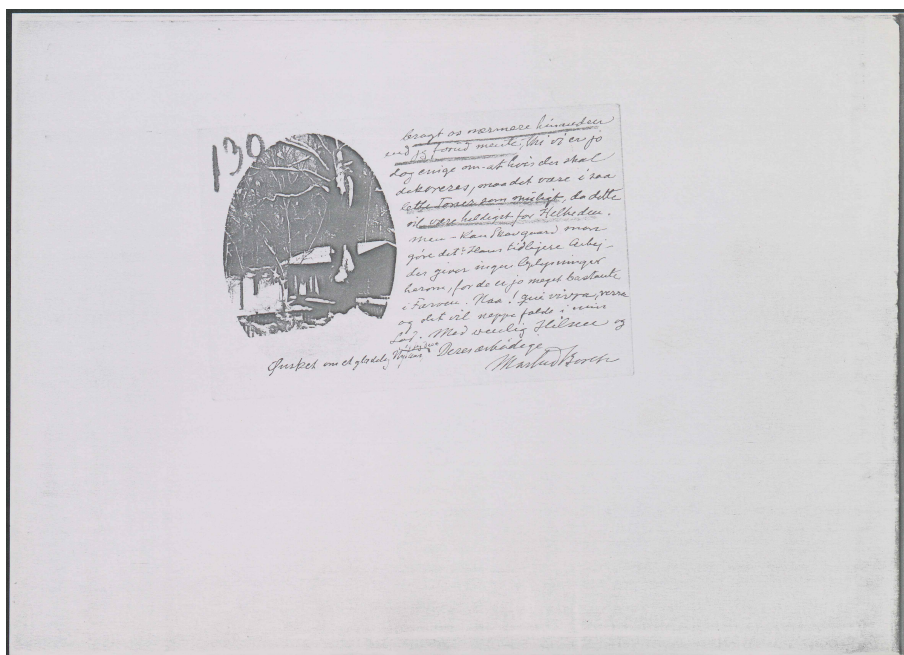 130
bragt os nærmere hinanden
end jeg forud mente, thi vi er jo
dog enige om at hvis der skal
dekoreres, maa det være i saa
lette Toner som muligt, da dette
vil være heldigst for Helheden.
men - kan Skovgaard mon
gøre det? Hans tidligere Arbej-
der giver ingen Oplysninger
herom, for de er jo meget bastante
i Farven. Naa! qui vivra, verra
og det vil næppe falde i min
Lod. Med venlig Hilsen og
Ønsket om et glædelig Nytaar Deres ærbødige
Martin Borch